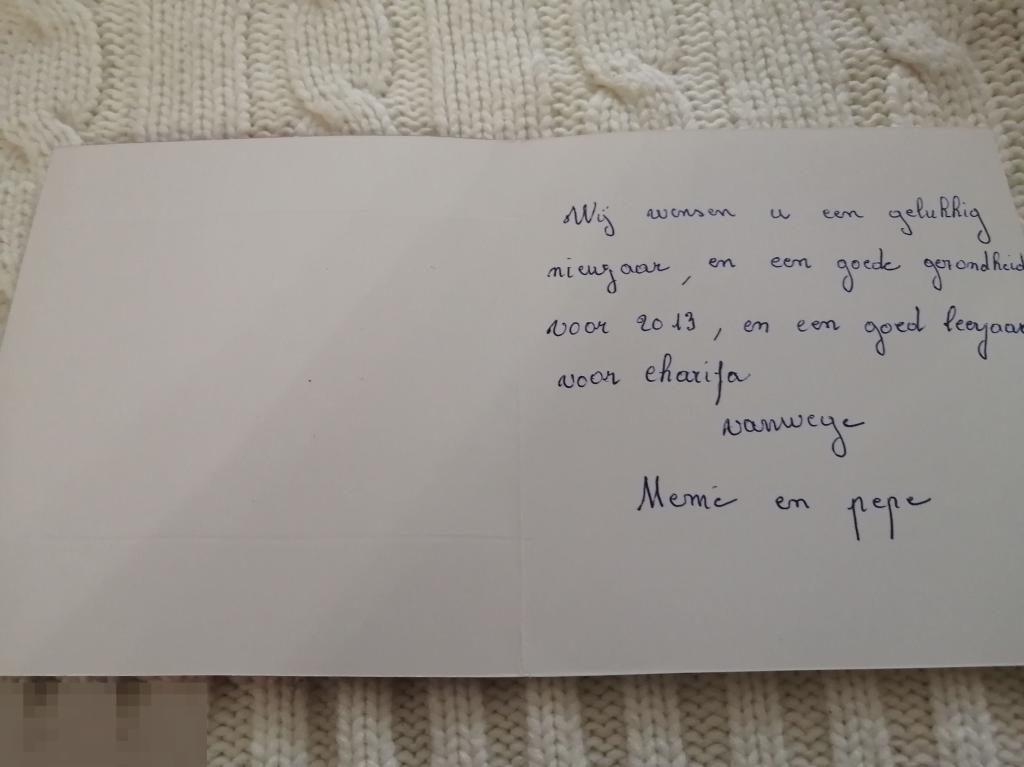 Wij wensen u een gelukkig
nieuwjaar, en een goede gezondheid
voor 2013, en een goed leerjaar
voor charifa
vanwege
Memé en pepe